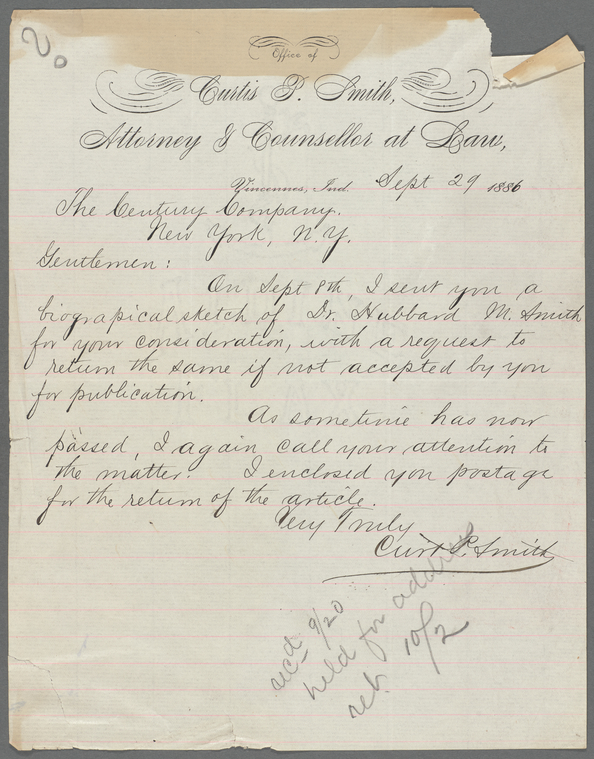 Office of
Curtis P. Smith,
Attorney & Counsellor at Law,
Vincennes, Ind. Sept 29 1886
The Century Company.
New York, N.Y.
Gentlemen:
On Sept 8th, I sent you a
biograpical sketch of Dr. Hubbard M. Smith
for your consideration, with a request to
return the same if not accepted by you
for publication.
As sometime has now
passed, I again call your attention to
the matter. I enclosed you postage
for the return of the article.
Very Truly
Curt P. Smith
recd 9/20
held for address
ret. 10/2